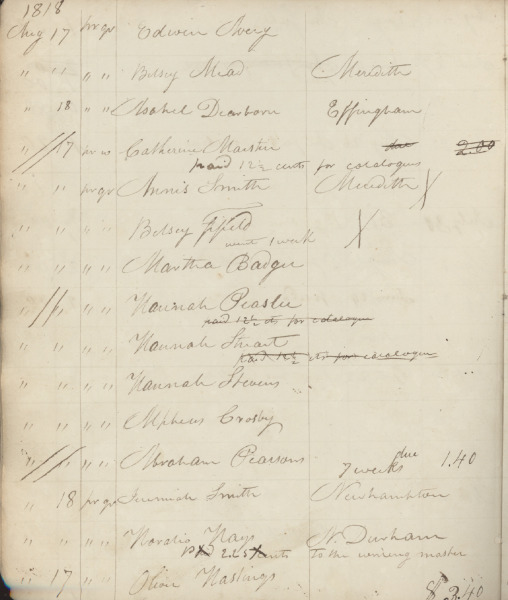 1818
Aug 17 pr qr Edwin Avery
" " " " Betsey Mead Meredith
" 18 " " Asahel Dearborn Effingham
" 17 Catherine Marston due 2.00
paid 12½ cents for catalogues
" " pr qr Annis Smith Meredith X
" " " " Betsey Fifield X
went 1 week
" " " " Martha Badger
" " " " Hannah Peaslee
paid 12½ cts for catalogue
" " " " Hannah Stuart
paid 12½ cts for catalogues
" " " " Hannah Stevens "
" " " " Alpheus Crosby
" " " " Abraham Pearsons 7 weeks due 1.40
" 18 pr qr Jeremiah Smith Newhampton
" " " " Horatio Hays N. Durham
cents to the writing master
" 17 " " Oliver Hastings